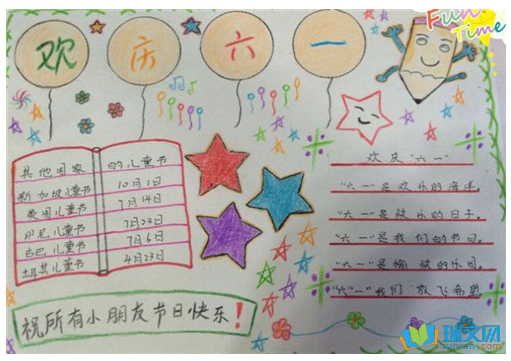 Fun Time
欢庆六一
其他国家 的儿童节
新加坡儿童节 10月1日
英国儿童节 7月14日
印尼儿童节 7月23日
古巴儿童节 7月6日
土耳其儿童节 4月23日
祝所有小朋友节日快乐！
欢庆“六一”
“六一”是欢乐的海洋。
“六一”是快乐的日子。
“六一”是我们的节日。
“六一”是愉快的乐园。
“六一”我们放飞希望
瑞文网